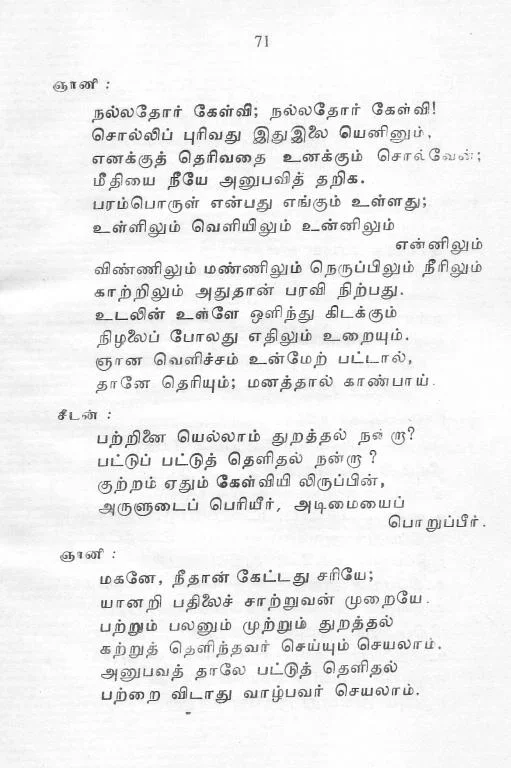 71
ஞானி :
நல்லதோர் கேள்வி; நல்லதோர் கேள்வி!
சொல்லிப் புரிவது இதுஇலை யெனினும்,
எனக்குத் தெரிவதை உனக்கும் சொல்வேன்;
மீதியை நீயே அனுபவித் தறிக.
பரம்பொருள் என்பது எங்கும் உள்ளது;
உள்ளிலும் வெளியிலும் உன்னிலும்
என்னிலும்
விண்ணிலும் மண்ணிலும் நெருப்பிலும் நீரிலும்
காற்றிலும் அதுதான் பரவி நிற்பது.
உடலின் உள்ளே ஒளிந்து கிடக்கும்
நிழலைப் போலது எதிலும் உறையும்.
ஞான வெளிச்சம் உன்மேற் பட்டால்,
தானே தெரியும்; மனத்தால் காண்பாய்.
சீடன் :
பற்றினை யெல்லாம் துறத்தல் நன்றா?
பட்டுப் பட்டுத் தெளிதல் நன்றா?
குற்றம் ஏதும் கேள்வியி லிருப்பின்,
அருளுடைப் பெரியீர், அடிமையைப்
பொறுப்பீர்.
ஞானி :
மகனே, நீதான் கேட்டது சரியே;
யானறி பதிலைச் சாற்றுவன் முறையே.
பற்றும் பலனும் முற்றும் துறத்தல்
கற்றுத் தெளிந்தவர் செய்யும் செயலாம்.
அனுபவத் தாலே பட்டுத் தெளிதல்
பற்றை விடாது வாழ்பவர் செயலாம்.